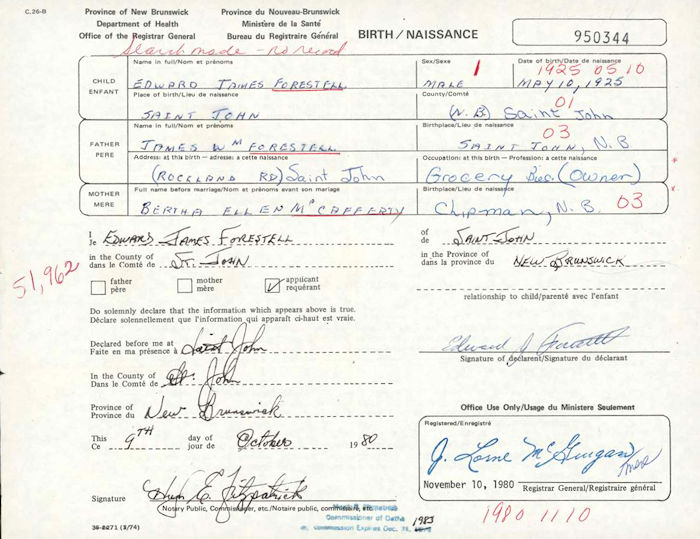 C.26-B
Province of New Brunswick Province du Nouveau-Brunswick
Department of Health Ministère de la Santé
Office of the Registrar General Bureau du Registraire Général BIRTH/NAISSANCE 950344
Search made - no record
CHILD
ENFANT
Name in full/Nom et prénoms Sex/Sexe Date of birth/Date de naissance
1 1925 05 10
EDWARD JAMES FORESTELL MALE MAY 10, 1925
Place of birth/Lieu de naissance County/Comté
01
SAINT JOHN (N.B.) Saint John
FATHER
PERE
Name in full/Nom et prénoms Birthplace/Lieu de naissance
03
JAMES Wm FORESTELL SAINT JOHN, N.B.
Address: at this birth — adresse: a cette naissance Occupation: at this birth — Profession: a cette naissance
(ROCKLAND RD) Saint John Grocery Bus. (Owner)
MOTHER
MERE
Full name before marriage/Nom et prénoms avant son mariage Birthplace/Lieu de naissance
BERTHA ELLEN McCAFFERTY Chipman, N.B. 03
I
Je EDWARD JAMES FORESTELL
of
de SAINT JOHN
in the County of
dans le Comté de ST. JOHN
in the Province of
dans la province du NEW BRUNSWICK
51,962
father
père
mother
mère
applicant
requérant
relationship to child/parenté avec l'enfant
Do solemnly declare that the information which appears above is true.
Déclare solennellement que l'information qui apparaît ci-haut est vraie.
Declared before me at
Faite en ma présence à Saint John
Edward J Forestell
Signature of declarent/Signature du déclarant
In the County of
Dans le Comté de St. John
Province of
Province du New Brunswick
Office Use Only/Usage du Ministere Seulement
This
Ce 9TH day of
jour de October 1980
Registered/Enregistré
J. Lorne McGuigan
November 10, 1980 Registrar General/Registraire général
Signature Hugh E. Fitzpatrick
Notary Public, Commissioner, etc./Notaire public, commissaire, etc.
Commissioner of Oaths
Commission Expires Dec. 31, 1983
1980 11 10
35-8271 (3/74)